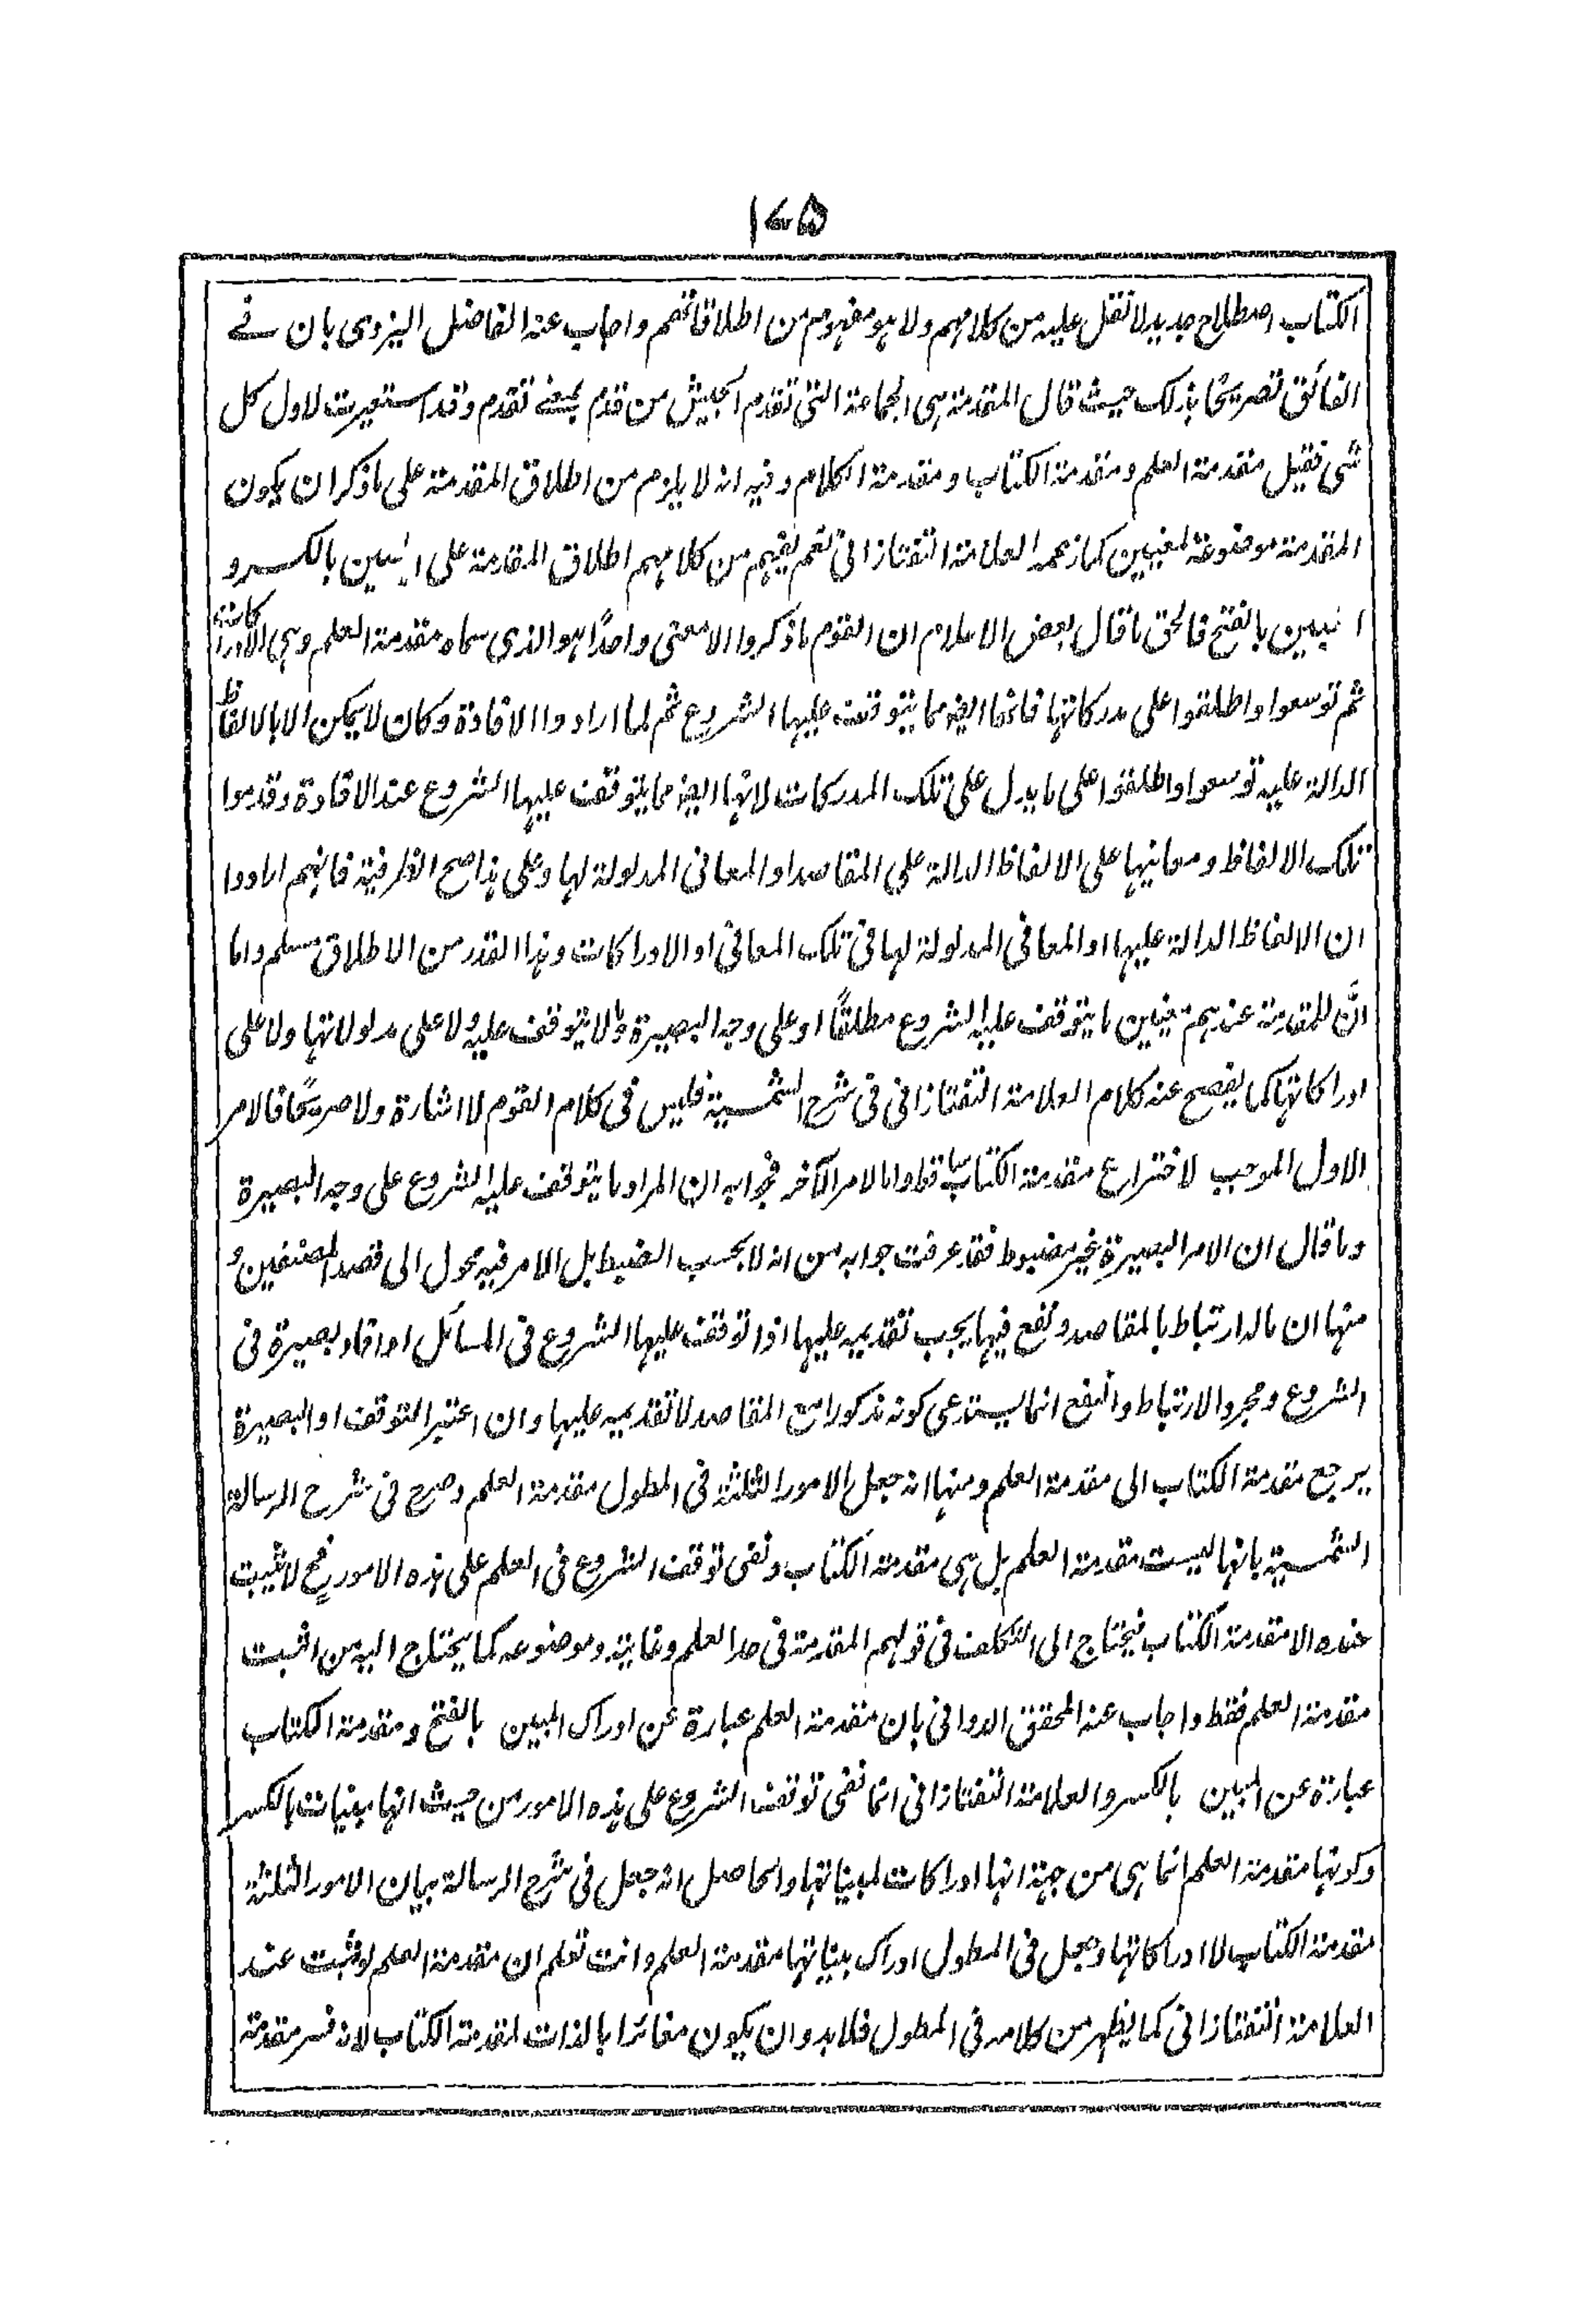 ١٧٥
الكتاب اصطلاح جديد لا نقل عليه من كلامهم ولا هو مفهوم من اطلاقاتهم واجاب عنه الفاضل اليزدى بان فى
الفائق تصريحًا بذلك حيث قال المقدمة هى الجماعة التى تقدم الجيش من قدم بمعنى تقدم وقد استعيرت لاول كل
شى فقيل مقدمة العلم ومقدمة الكتاب ومقدمة الكلام وفيه انه لا يلزم من اطلاق المقدمة على ما ذكر ان يكون
المقدمة موضوعة لمعنيين كما زعمه العلامة التفتازانى نعم يفهم من كلامهم اطلاق المقدمة على المبين بالكسر و
المبين بالفتح فالحق ما قال بعض الاعلام ان القوم ما ذكروا الا معنى واحدًا هو الذى سماه مقدمة العلم وهى الادراكات
ثم توسعوا واطلقوا على مدركاتها فانها ايضا مما يتوقف عليها الشروع ثم لما ارادوا الافادة وكان لا يمكن الا بالالفاظ
الدالة عليه توسعوا واطلقوا على ما يدل على تلك المدركات لانها ايضا مما يتوقف عليها الشروع عند الافادة وقدموا
تلك الالفاظ ومعانيها على الالفاظ الدالة على المقاصد او المعانى المدلولة لها وعلى هذا صح الظرفية فانهم ارادوا
ان الالفاظ الدالة عليها او المعانى المدلولة لها فى تلك المعانى او الادراكات وهذا القدر من الاطلاق مسلم واما
انّ للمقدمة عندهم معنيين ما يتوقف عليه الشروع مطلقًا او على وجه البصيرة وما لا يتوقف عليه ولا على مدلولاتها ولا على
ادراكاتها كما يفصح عنه كلام العلامة التفتازانى فى شرح الشمسية فليس فى كلام القوم لا اشارة ولا صريحًا فالامر
الاول الموجب لاختراع مقدمة الكتاب ساقط واما الامر الآخر فجوابه ان المراد ما يتوقف عليه الشروع على وجه البصيرة
وما قال ان الامر البصيرة غير مضبوط فقد عرفت جوابه من انه لا يجب الضبط بل الامر فيه محول الى قصد المصنفين و
منها ان ماله ارتباط بالمقاصد ونفع فيها يجب تقديمه عليها اذا توقف عليها الشروع فى المسائل او افاد بصيرة فى
الشروع ومجرد الارتباط والنفع انما يستدعى كونه مذكورا مع المقاصد لا تقديمه عليها وان اعتبر التوقف او البصيرة
يرجع مقدمة الكتاب الى مقدمة العلم ومنها انه جعل الامور الثلثة فى المطول مقدمة العلم وصرح فى شرح الرسالة
الشمسية بانها ليست مقدمة العلم بل هى مقدمة الكتاب ونفى توقف الشروع فى العلم على هذه الامور فح لا يثبت
عنده الا مقدمة الكتاب فيحتاج الى التكلف فى قولهم المقدمة فى حد العلم وغايته وموضوعه كما يحتاج اليه من اثبت
مقدمة العلم فقط واجاب عنه المحقق الدوانى بان مقدمة العلم عبارة عن ادراك المبين بالفتح ومقدمة الكتاب
عبارة عن المبين بالكسر والعلامة التفتازانى انما نفى توقف الشروع على هذه الامور من حيث انها مبينات بالكسر
وكونها مقدمة العلم انما هى من جهة انها ادراكات لمبيناتها والحاصل انه جعل فى شرح الرسالة بيان الامور الثلثة
مقدمة الكتاب لا ادراكاتها وجعل فى المطول ادراك مبيناتها مقدمة العلم وانت تعلم ان مقدمة العلم لو ثبت عند
العلامة التفتازانى كما يظهر من كلامه فى المطول فلا بد وان يكون مغائرا بالذات لمقدمة الكتاب لانه فسر مقدمة